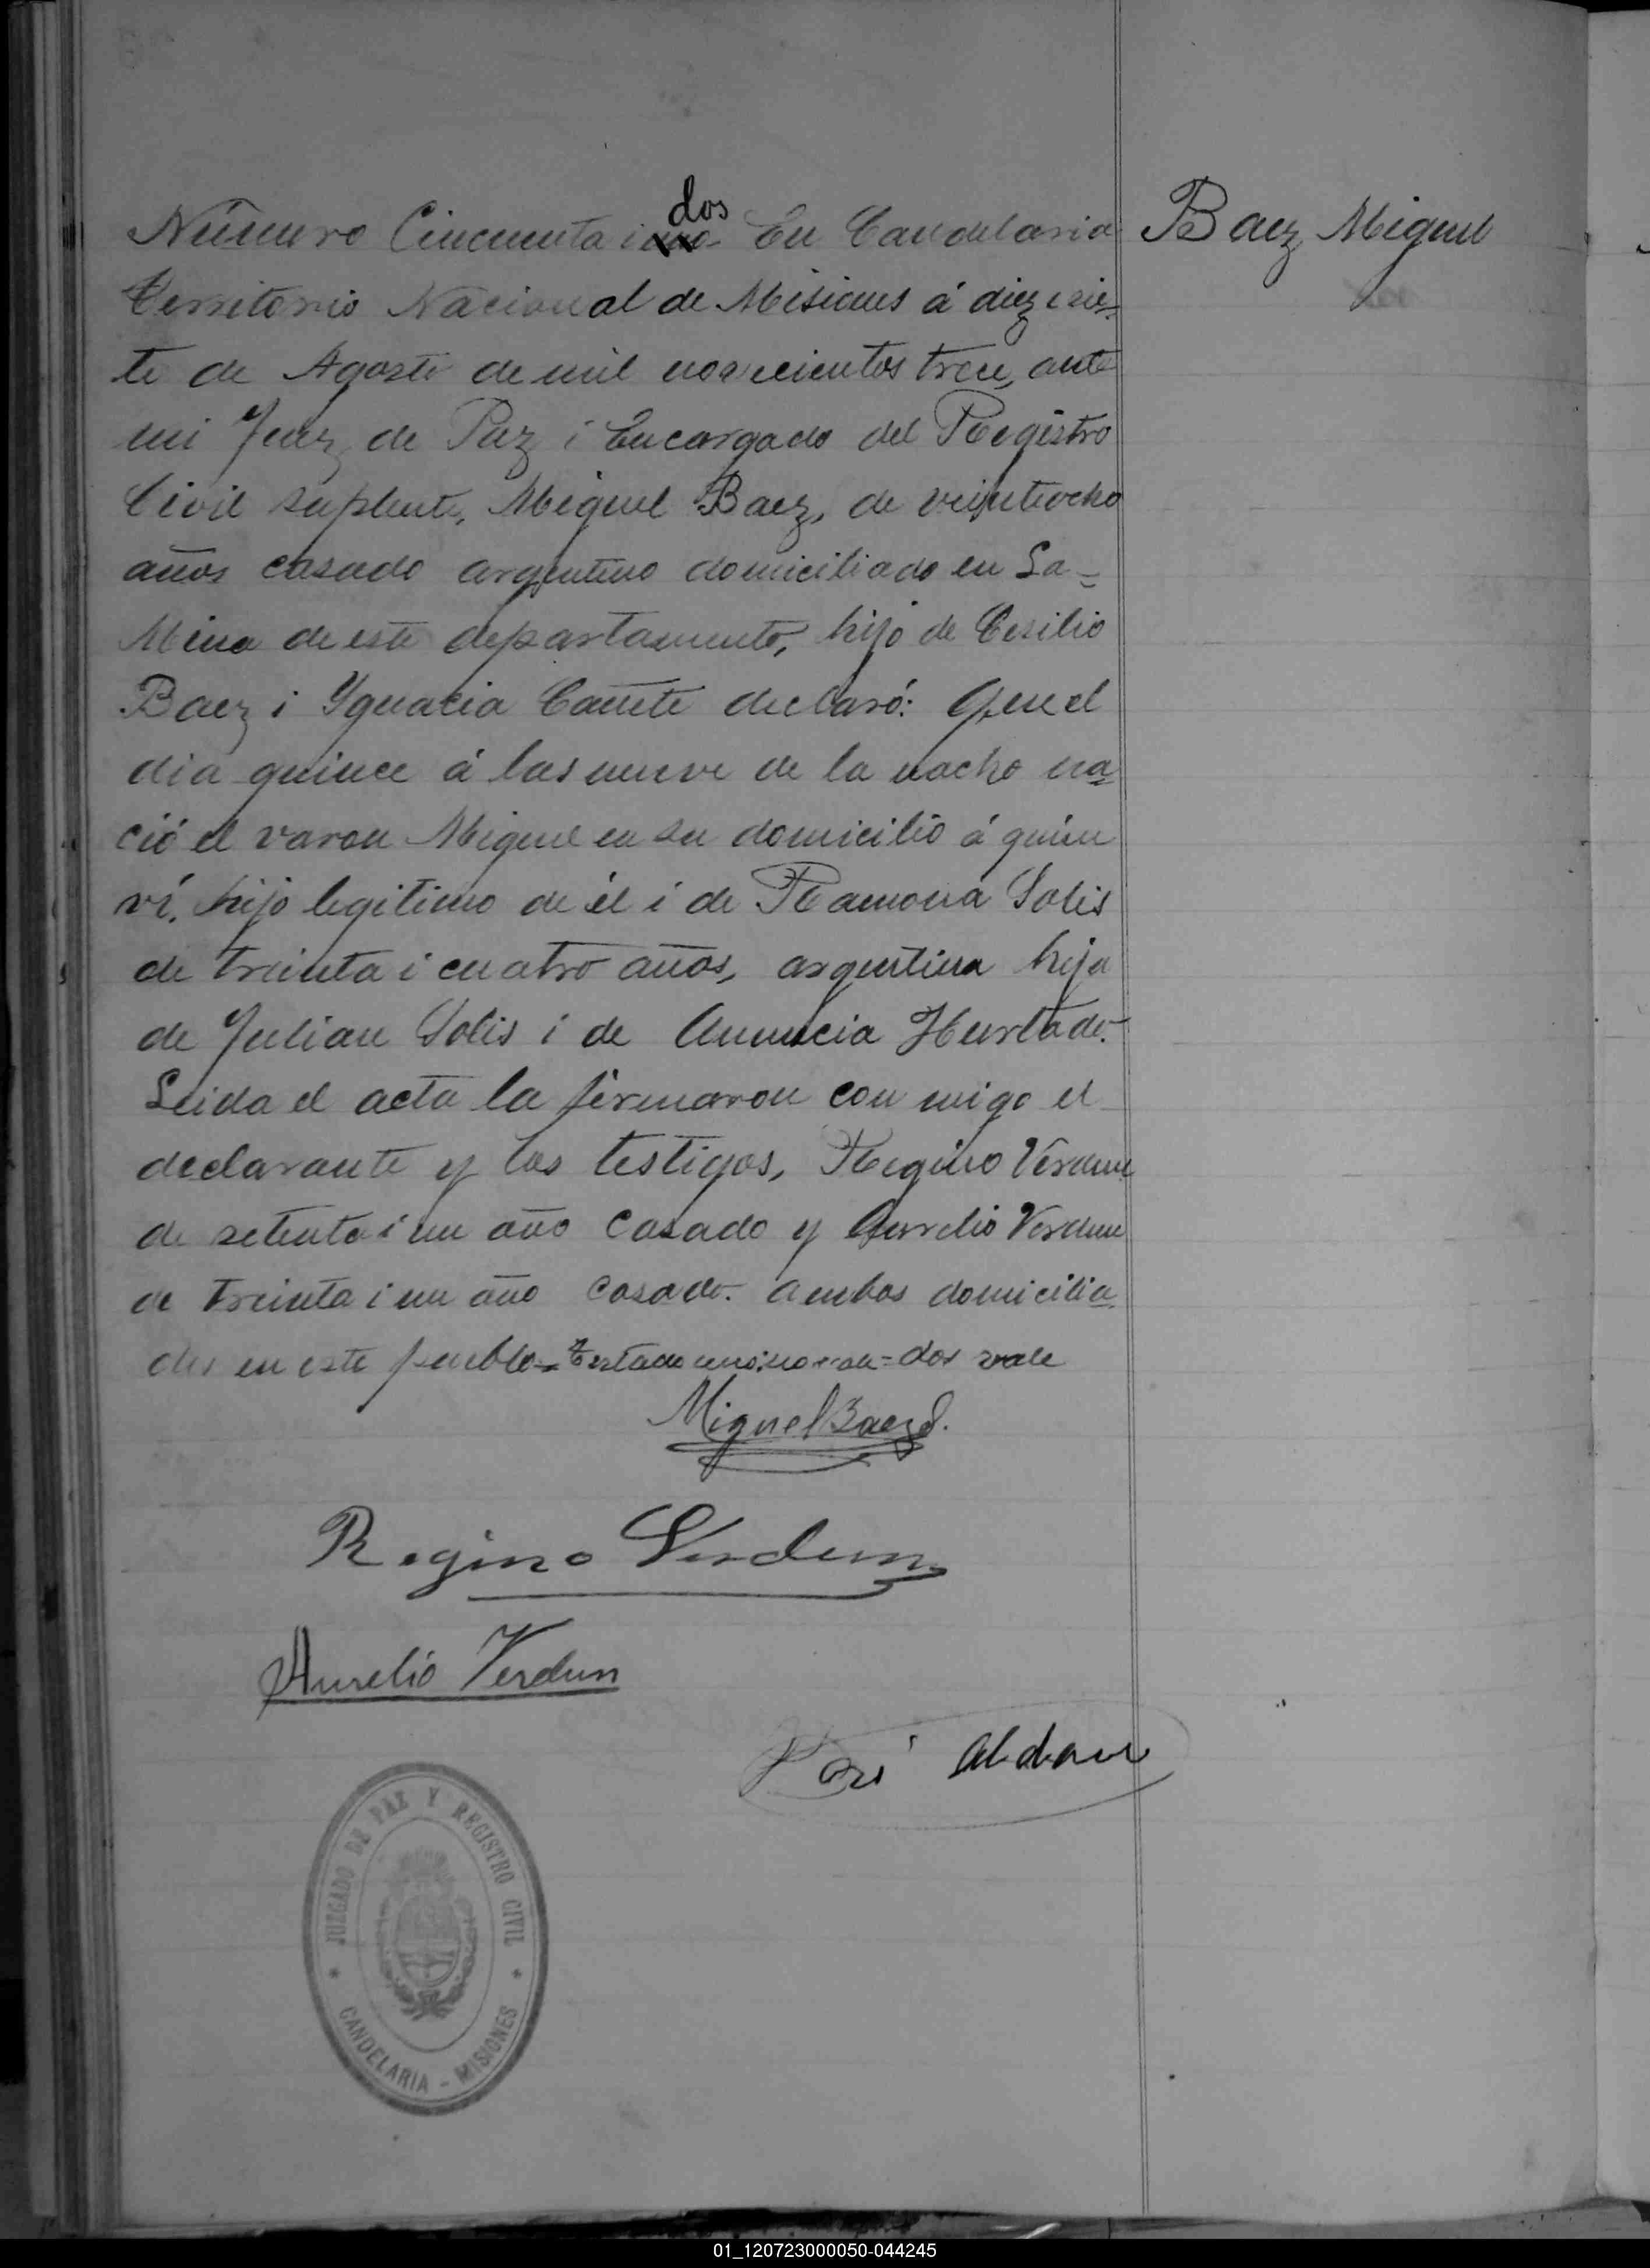 Número Cincuenta i uno dos En Candelaria
Baez Miguel
Territorio Nacional de Misiones á diez i sie-
te de Agosto de mil novecientos trece, ante
mi Juez de Paz i Encargado del Registro
Civil suplente, Miguel Baez, de veintiocho
años casado argentino domiciliado en La=
Mina de este departamento, hijo de Cesilio
Baez i Ygnacia Cañete declaró: Que el
dia quince á las nueve de la noche na
ció el varon Miguel en su domicilio á quien
ví, hijo legitimo de él i de Ramona Solis
de treinta i cuatro años, argentina hija
de Julian Solis i de Anuncia Hurtado.
Leida el acta la firmaron con migo el
declarante y los testigos, Regino Verdun
de setenta i un año casado y Aurelio Verdun
de treinta i un año casado. ambos domicilia
dos en este pueblo = Testado uno: no vale = dos vale
Miguel Baez S.
Regino Verdun
Aurelio Verdun
José
JUZGADO DE PAZ Y REGISTRO CIVIL
* CANDELARIA - MISIONES *
01_120723000050-044245